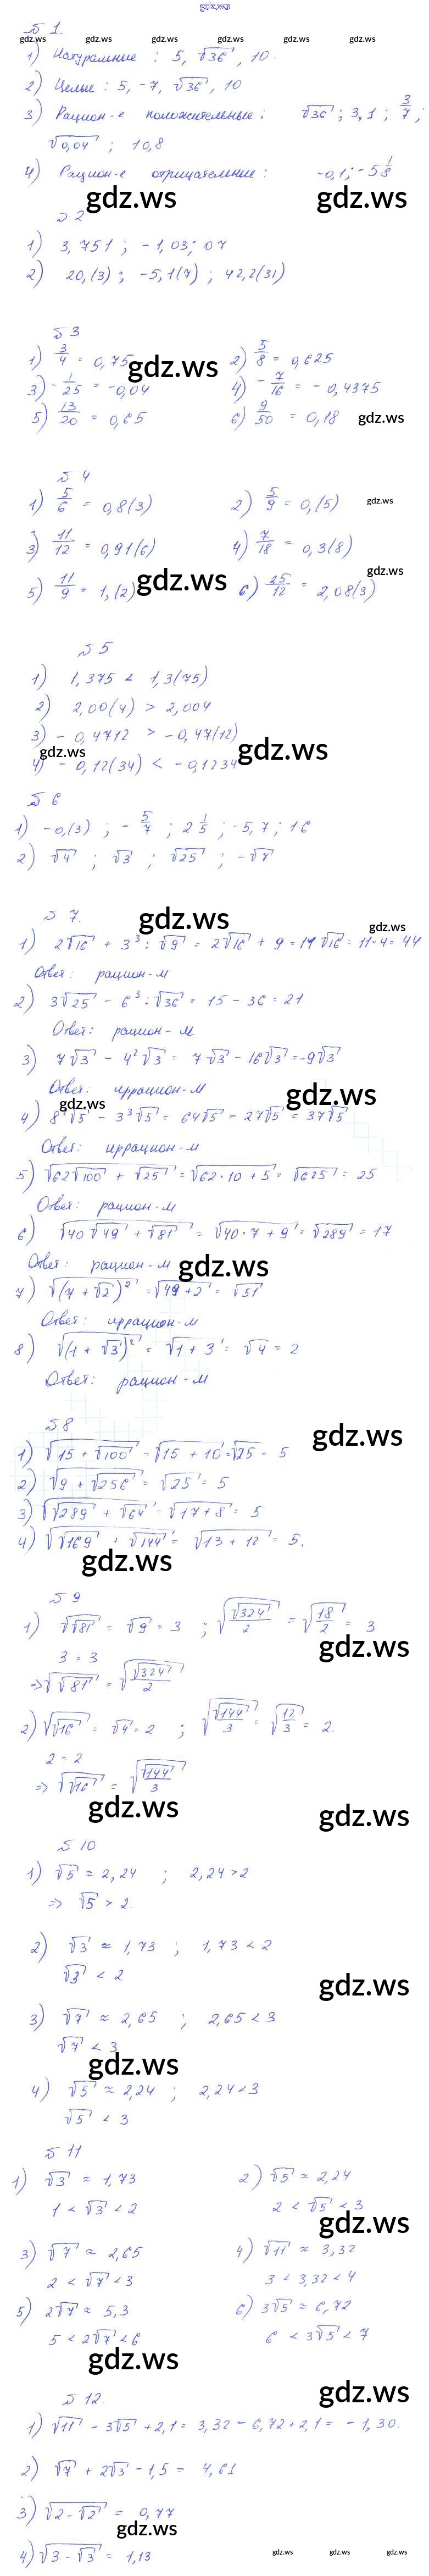 gdz.ws
№ 1.
gdz.ws gdz.ws gdz.ws gdz.ws gdz.ws gdz.ws
1) Натуральные : 5, √36, 10.
2) Целые : 5, -7, √36, 10
3) Рацион-е положительные : √36 ; 3,1 ; 3/7 ;
√0,04 ; 10,8
4) Рацион-е отрицательные : -0,1 ; -5 1/8
gdz.ws gdz.ws
№ 2
1) 3,751 ; -1,03 ; 07
2) 20,(3) ; -5,1(7) ; 42,2(31)
№ 3
1) 3/4 = 0,75 2) 5/8 = 0,625
gdz.ws
3) -1/25 = -0,04 4) -7/16 = -0,4375
5) 13/20 = 0,65 6) 9/50 = 0,18
gdz.ws
№ 4
1) 5/6 = 0,8(3) 2) 5/9 = 0,(5)
gdz.ws
3) 11/12 = 0,91(6) 4) 7/18 = 0,3(8)
gdz.ws
5) 11/9 = 1,(2) 6) 25/12 = 2,08(3)
gdz.ws
№ 5
1) 1,375 < 1,3(75)
2) 2,00(4) > 2,004
3) -0,4712 > -0,47(12)
gdz.ws gdz.ws
4) -0,12(34) < -0,1234
№ 6
1) -0,(3) ; -5/7 ; 2 1/5 ; -5,7 ; 16
2) √4 ; √3 ; √25 ; -√7
№ 7.
gdz.ws gdz.ws
1) 2√16 + 3³ : √9 = 2√16 + 9 = 11√16 = 11·4 = 44
Ответ: рацион-м
2) 3√25 - 6³ : √36 = 15 - 36 = 21
Ответ: рацион-м
3) 7√3 - 4²√3 = 7√3 - 16√3 = -9√3
Ответ: иррацион-м
gdz.ws gdz.ws
4) 8²√5 - 3³√5 = 64√5 - 27√5 = 37√5
Ответ: иррацион-м
5) √(62√100 + √25) = √(62·10 + 5) = √625 = 25
Ответ: рацион-м
6) √(40√49 + √81) = √(40·7 + 9) = √289 = 17
Ответ: рацион-м
gdz.ws
7) √(7 + √2)² = √(49 + 2) = √51
Ответ: иррацион-м
8) √(1 + √3)² = √(1 + 3) = √4 = 2
Ответ: рацион-м
№ 8
gdz.ws
1) √(15 + √100) = √(15 + 10) = √25 = 5
2) √(9 + √256) = √25 = 5
3) √(√289 + √64) = √(17 + 8) = 5
4) √(√169 + √144) = √(13 + 12) = 5.
gdz.ws
№ 9
1) √√81 = √9 = 3 ; √(√324/2) = √(18/2) = 3
gdz.ws
3 = 3
⇒ √√81 = √(√324/2)
2) √√16 = √4 = 2 ; √(√144/3) = √(12/3) = 2.
2 = 2
⇒ √√16 = √(√144/3)
gdz.ws gdz.ws
№ 10
1) √5 ≈ 2,24 ; 2,24 > 2
⇒ √5 > 2.
2) √3 ≈ 1,73 ; 1,73 < 2
√3 < 2
gdz.ws
3) √7 ≈ 2,65 ; 2,65 < 3
√7 < 3
gdz.ws
4) √5 ≈ 2,24 ; 2,24 < 3
√5 < 3
№ 11
1) √3 ≈ 1,73 2) √5 ≈ 2,24
1 < √3 < 2 2 < √5 < 3
gdz.ws
3) √7 ≈ 2,65 4) √11 ≈ 3,32
2 < √7 < 3 3 < 3,32 < 4
5) 2√7 ≈ 5,3 6) 3√5 ≈ 6,72
5 < 2√7 < 6 6 < 3√5 < 7
gdz.ws gdz.ws
№ 12.
1) √11 - 3√5 + 2,1 = 3,32 - 6,72 + 2,1 = -1,30.
2) √7 + 2√3 - 1,5 = 4,61
3) √(2 - √2) = 0,77
gdz.ws
4) √(3 - √3) = 1,13
gdz.ws gdz.ws gdz.ws